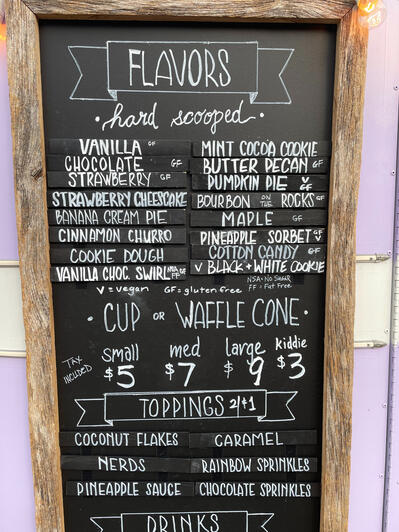 FLAVORS
• hard scooped •
VANILLA GF
CHOCOLATE GF
STRAWBERRY GF
STRAWBERRY CHEESCAKE
BANANA CREAM PIE
CINNAMON CHURRO
COOKIE DOUGH
VANILLA CHOC. SWIRL NSA FF
MINT COCOA COOKIE
BUTTER PECAN GF
PUMPKIN PIE V GF
BOURBON ON THE ROCKS GF
MAPLE GF
PINEAPPLE SORBET V GF
COTTON CANDY GF
V BLACK + WHITE COOKIE
V = vegan GF = gluten free
NSA = NO SUGAR
FF = Fat Free
• CUP OR WAFFLE CONE •
TAX INCLUDED
small med large kiddie
$5 $7 $9 $3
TOPPINGS 2/$1
COCONUT FLAKES
NERDS
PINEAPPLE SAUCE
CARAMEL
RAINBOW SPRINKLES
CHOCOLATE SPRINKLES
DRINKS